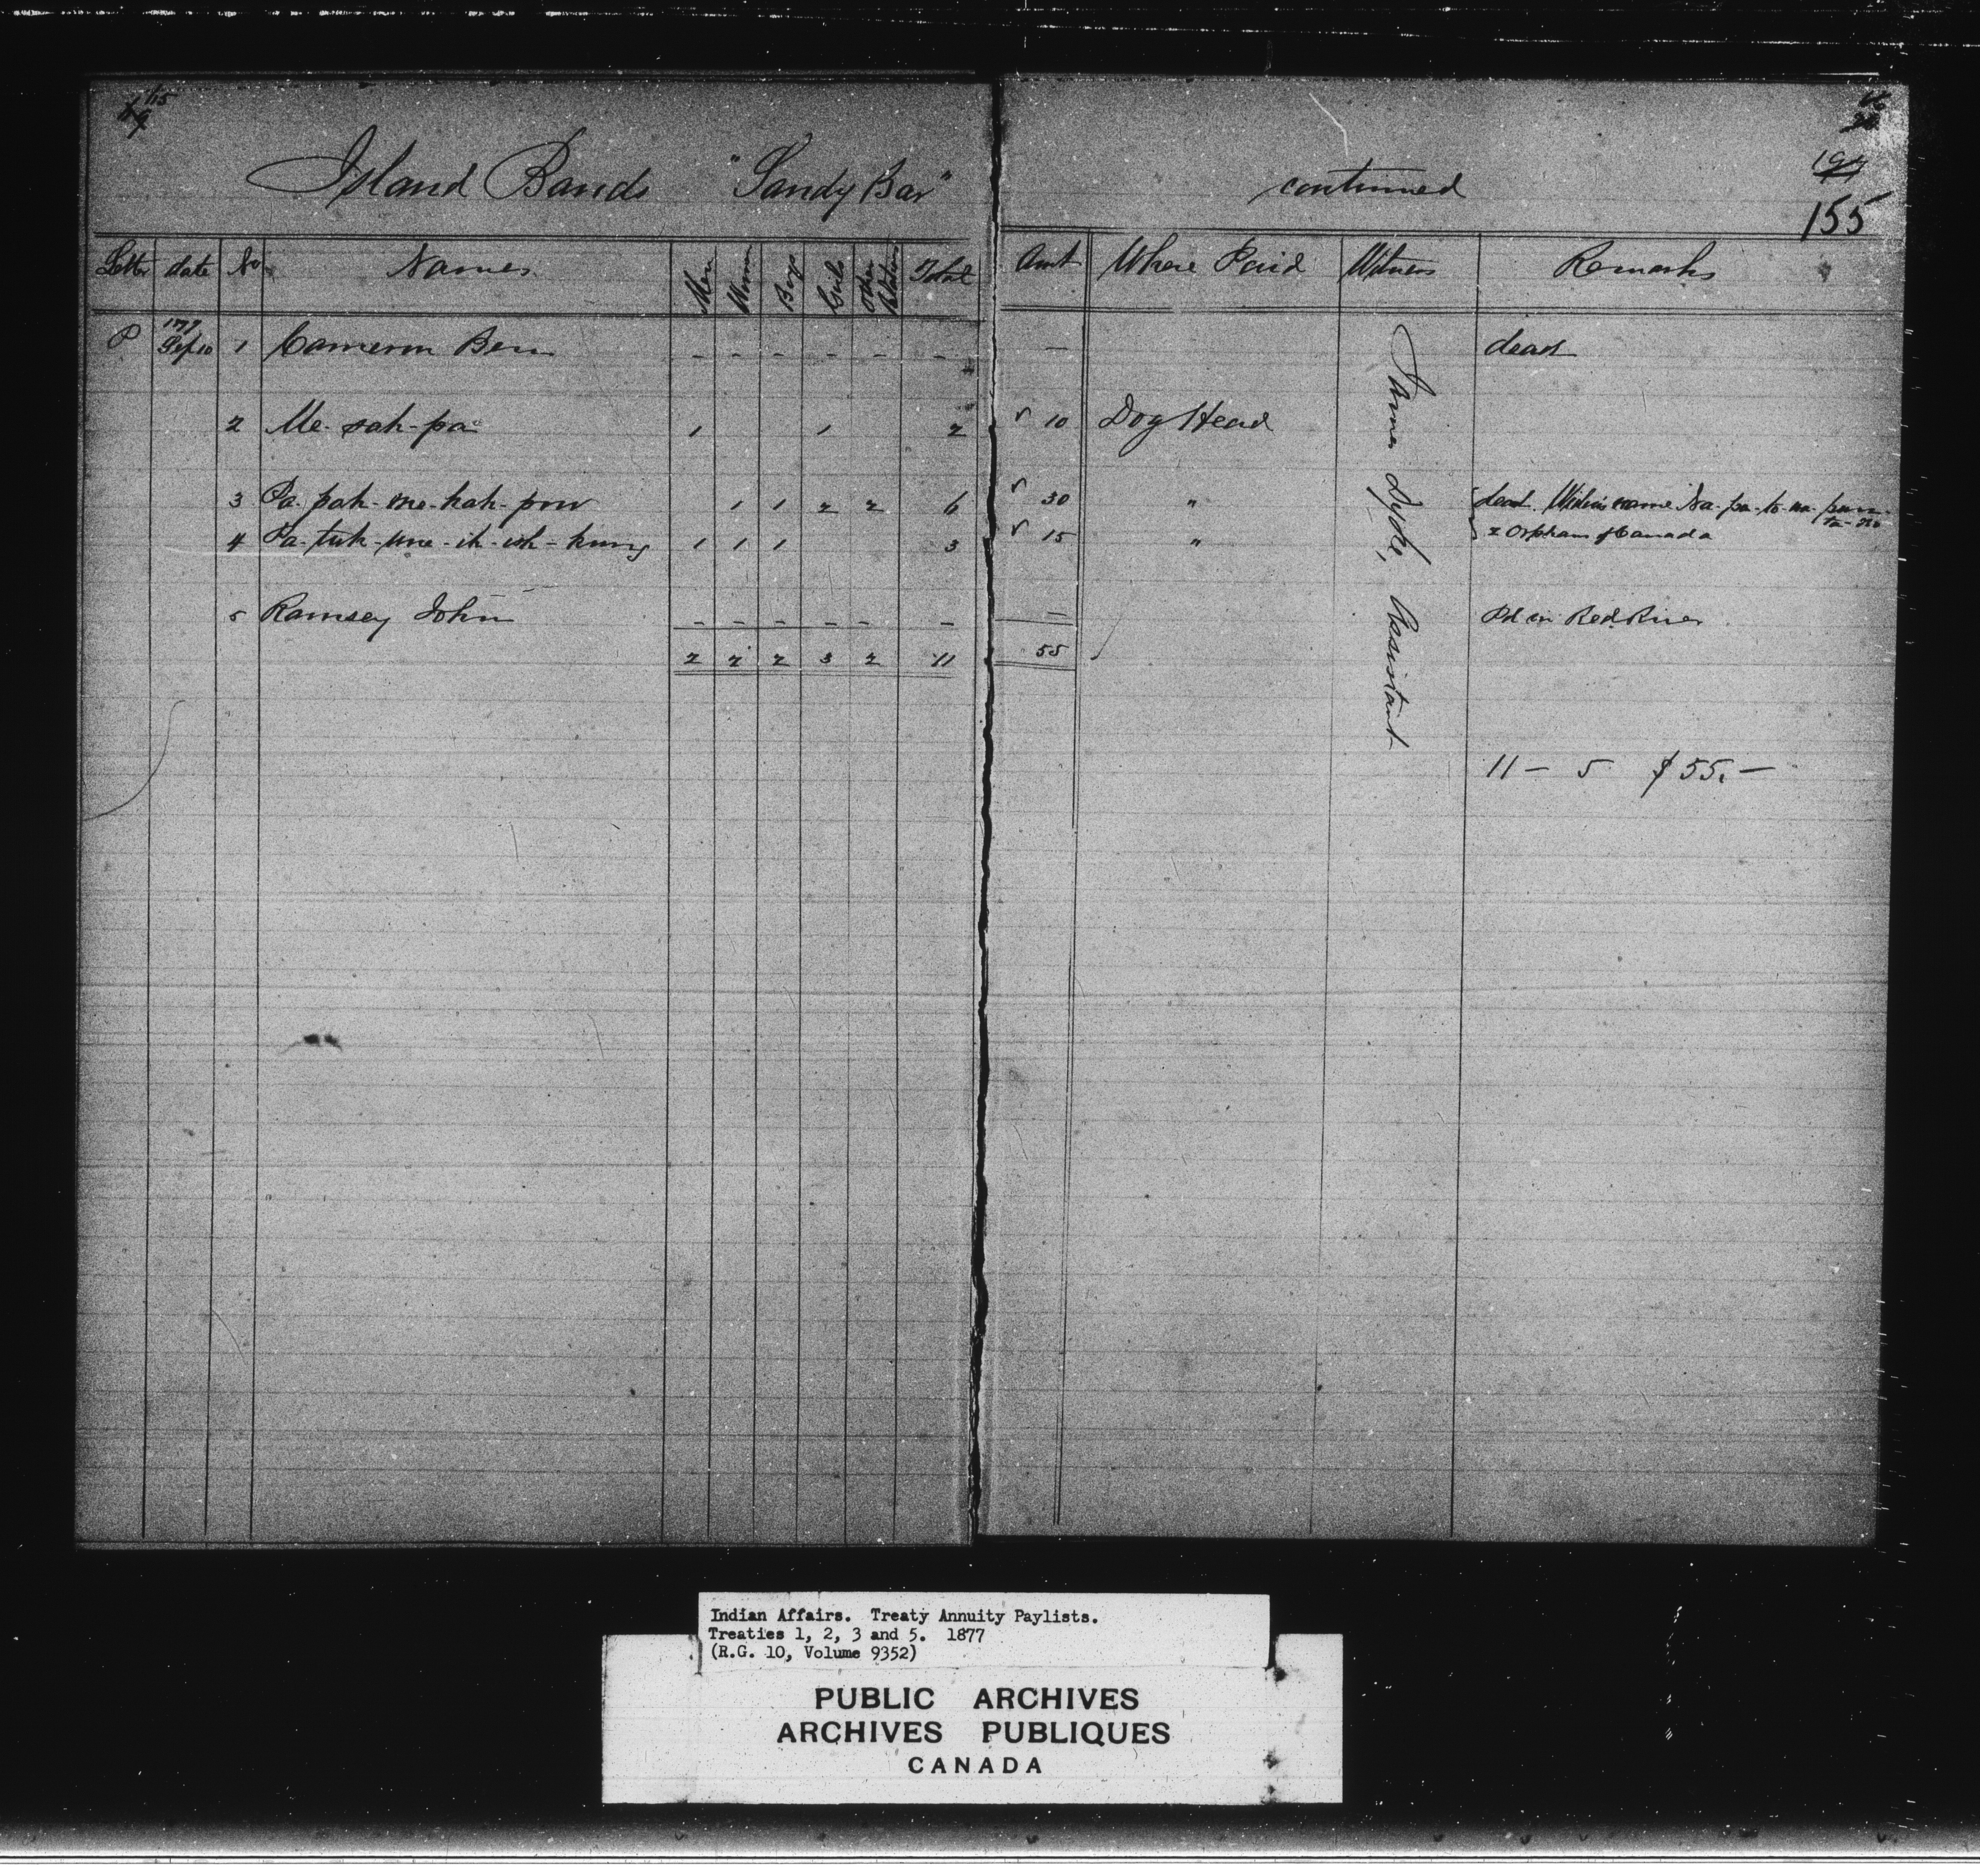 115
Island Bands "Sandy Bar" continued
155
Letter date No Names Men Women Boys Girls Other Relatives Total Amt Where Paid Witness Remarks
P 1877 Sep 10 1 Cameron Ben - - - - - - — dead
2 Me-sah-pa 1 1 2 √ 10 Dog Head
3 Pa-pah-me-kah-pow 1 1 2 2 6 √ 30 " dead. Widow's name
4 1 1 1 3 √ 15 " 2 Orphans of Canada
5 Ramsey John - - - - - - — Pd in Red River
2 2 2 3 2 11 55 √
James Dyke, Assistant
11 — 5 $55.—
Indian Affairs. Treaty Annuity Paylists.
Treaties 1, 2, 3 and 5. 1877
(R.G. 10, Volume 9352)
PUBLIC ARCHIVES
ARCHIVES PUBLIQUES
CANADA